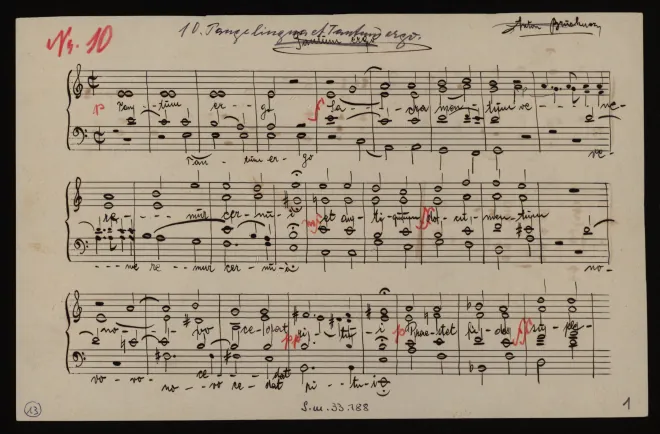 No. 10
10. Pange lingua et Tantum ergo.
Tantum ergo
Anton Bruckner
p Tan - - tum er - - go f Sa - - - cra men - - tum ve - - ne-
Tan - tum er - go ve-
re - - - - mur cer - nu - i mf et an - ti - quum ff do - cu - men - tum
- - - - ne re - - mur cer - nu - i no-
no - - - vo ce - dat pp ri - - tu - - i p Prae - stet fi - des ff sup - ple-
vo - - vo - ce - - dat
no - - vo ce - dat ri - - tu - i
13
S.m. 33.188
1